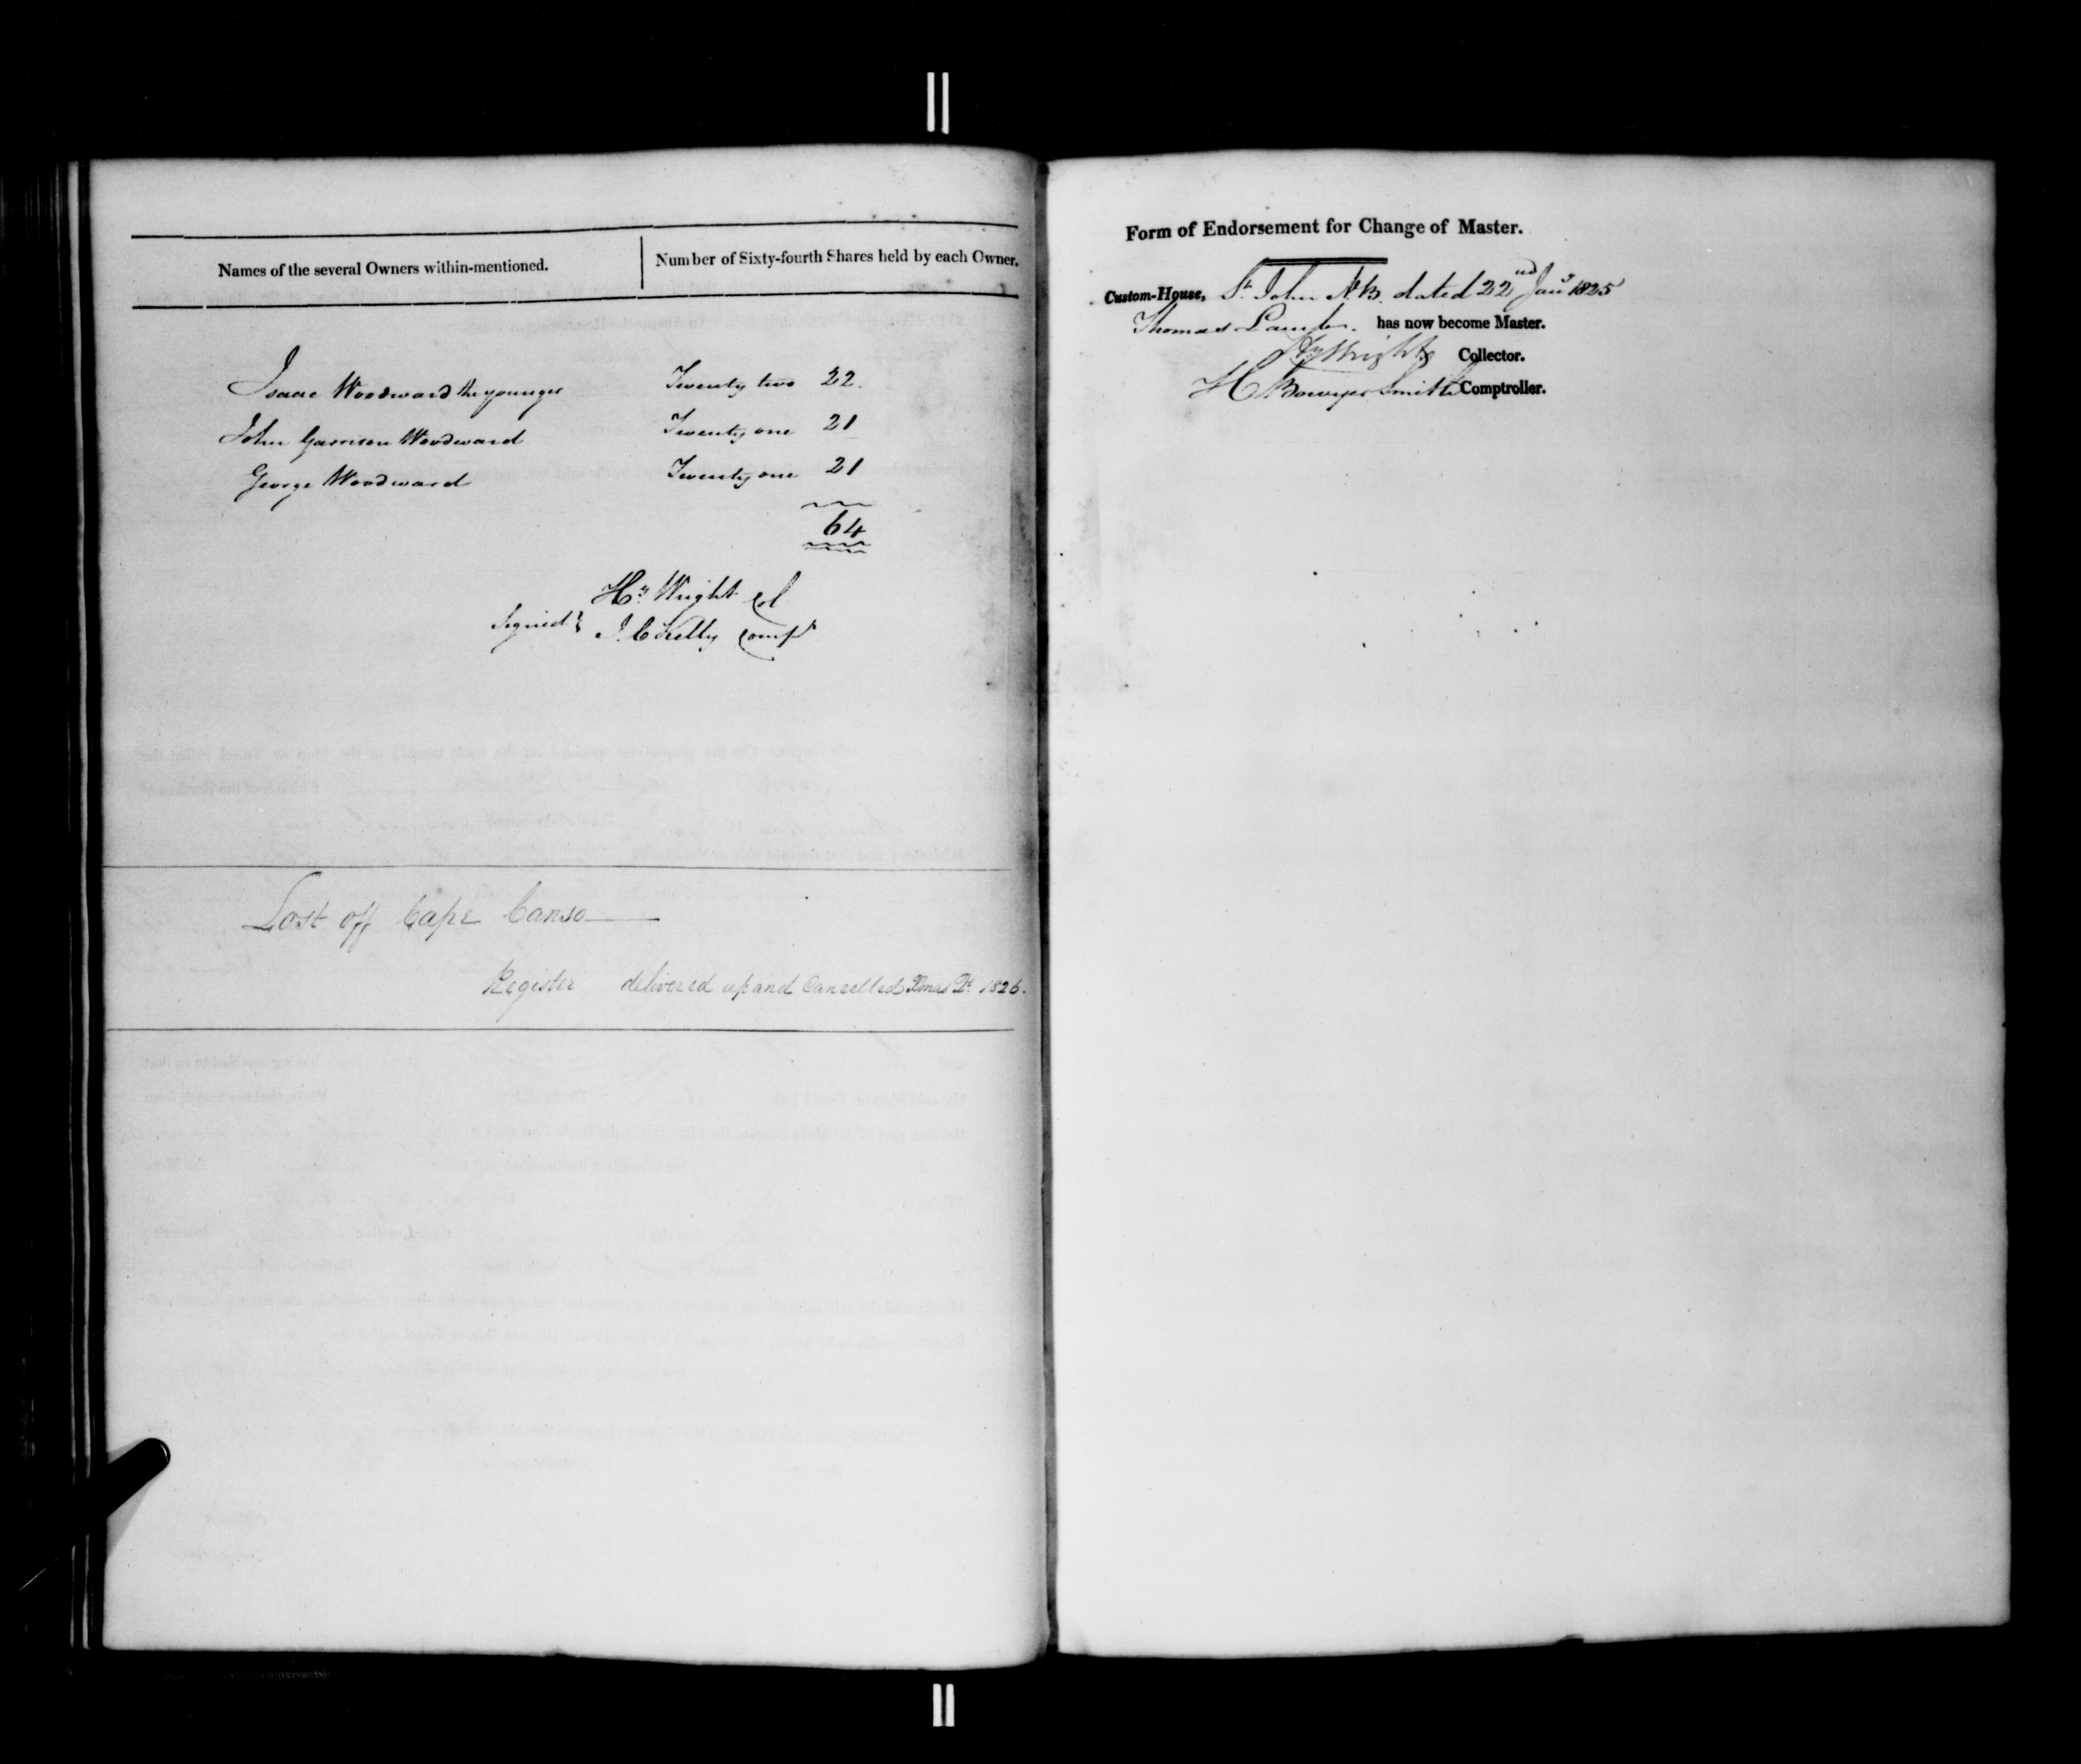 Names of the several Owners within-mentioned. Number of Sixty-fourth Shares held by each Owner.
Isaac Woodward the younger Twenty two 22.
John Garrison Woodward Twenty one 21
George Woodward Twenty one 21
64
Hy. Wright Col
Signed J. C Kelly Compr
Lost off Cape Canso
Register delivered up and Cancelled Xmas Qr 1826.
Form of Endorsement for Change of Master.
Custom-House, St. John N.B. dated 22nd Jany 1825
Thomas has now become Master.
Hy Wright Collector.
H Bowyer Smith Comptroller.